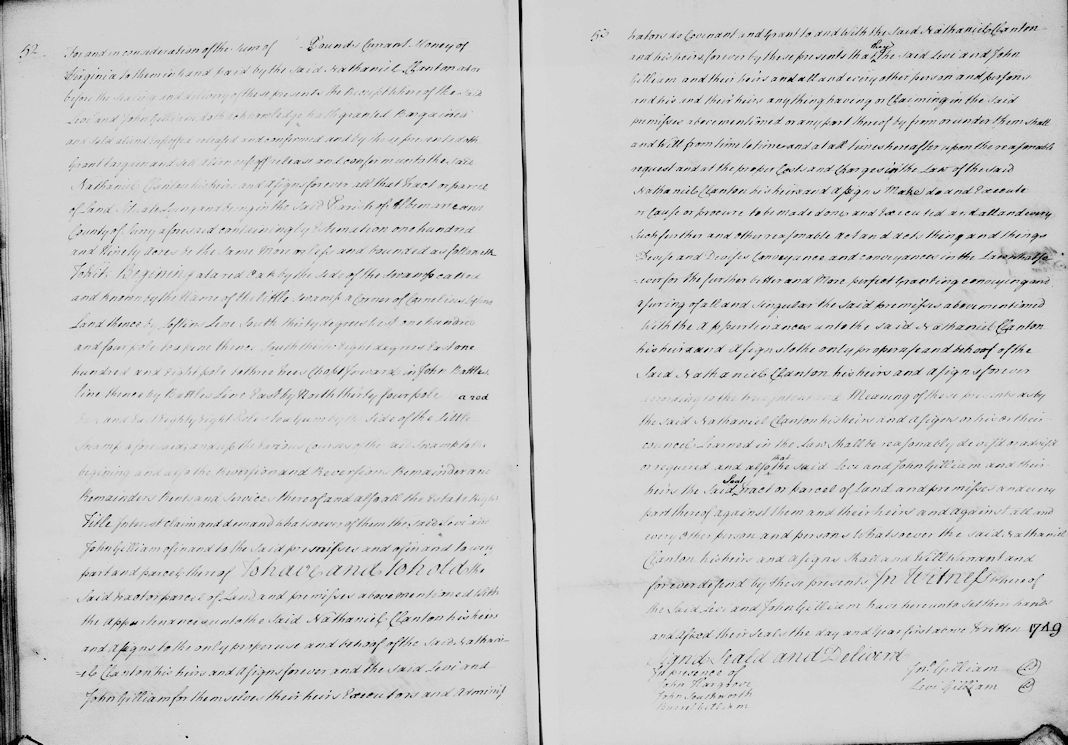 52
For and in consideration of the Sum of Pounds Currant Money of
Virginia to them in hand paid by the said Nathaniel Clanton at or
before the sealing and delivery of these presents the Receipt where of the said
Levi and John Gilliam doth acknowledge hath granted Bargained
and Sold aliend infeoffed released and confirmed and by these presents doth
Grant bargain and sell alien enfeoff release and confirm unto the said
Nathaniel Clanton his heirs and Asigns forever all that Tract or parcel
of Land Situate Lying and being in the Said Parish of Albemarle and
County of Surry aforesaid containing by Estimation one hundred
and Ninety acres be the Same More or less and bounded as followeth
To wit Begining at a red Oak by the Side of the Swamp called
and known by the Name of the little Swamp a Corner of Cornelius
Land thence by Line South thirty degrees West one hundred
and four pole to a pine thence South thirty Eight degrees East one
hundred and Eight pole to three trees Chopt forward in John Battles
line thence by Battles Line East by North thirty four pole a red
and East Eighty Eight Pole to a by the Side of the Little
Swamp afore said and up the Various Courses of the said Swamp to the
begining and also the Reversion and Reversions Remainder and
Remainders Rents and Services there of and also all the Estate Right
Title Interest claim and demand what soever of them the said Levi and
John Gilliam of in and to the Said premises and of in and to every
part and parcel there of To have and To hold the
Said tract or parcel of Land and premisses above mentioned With
the Appurtenances unto the Said Nathaniel Clanton his heirs
and Asigns to the only proper use and behoof of the Said Nathani-
-el Clanton his heirs and Asigns forever and the Said Levi and
John Gilliam for themselves their heirs Executors and Adminis
53
trators do Covenant and Grant to and With the Said Nathaniel Clanton
and his heirs forever by these presents that they the Said Levi and John
Gilliam and their heirs and all and every other person and persons
and his and their heirs any thing having or Claiming in the Said
premisses above mentioned or any part there of by from or under them shall
and will from time to time and at all times hereafter upon the reasonable
request and at the proper Costs and Charges in the Law of the said
Nathaniel Clanton his heirs and Asigns Make do and Execute
or Cause or procure to be made done and Executed and all and every
Such further and other reasonable Act and Acts thing and things
Devise and Devises Conveyence and conveyances in the Law whatso
ever for the further better and More perfect Granting conveying and
asuring of all and Singular the Said premises above mentioned
With the Appurtenances unto the said Nathaniel Clanton
his heirs and Asigns to the only proper use and behoof of the
Said Nathaniel Clanton his heirs and Asigns forever
according to the true intent and Meaning of these presents as by
the said Nathaniel Clanton his heirs and Asigns or his or their
council Learned in the Law Shall be reasonably devis'd or advis'd
or required and also that the said Levi and John Gilliam and their
heirs the Said Tract or parcel of Land and premisses and every
part there of against them and their heirs and Against all and
every Other person and persons What soever the said Nathaniel
Clanton his heirs and Asigns Shall and Will Warrant and
forever defend by these presents In Witness where of
the Said Levi and John Gilliam have here unto Set their hands
and Afixed their Seals the day and Year first above Written 1749
Signd Seald and Deliverd
In presence of
John Hargrove
John Southworth
Gilliam
Jno. Gilliam
Levi Gilliam